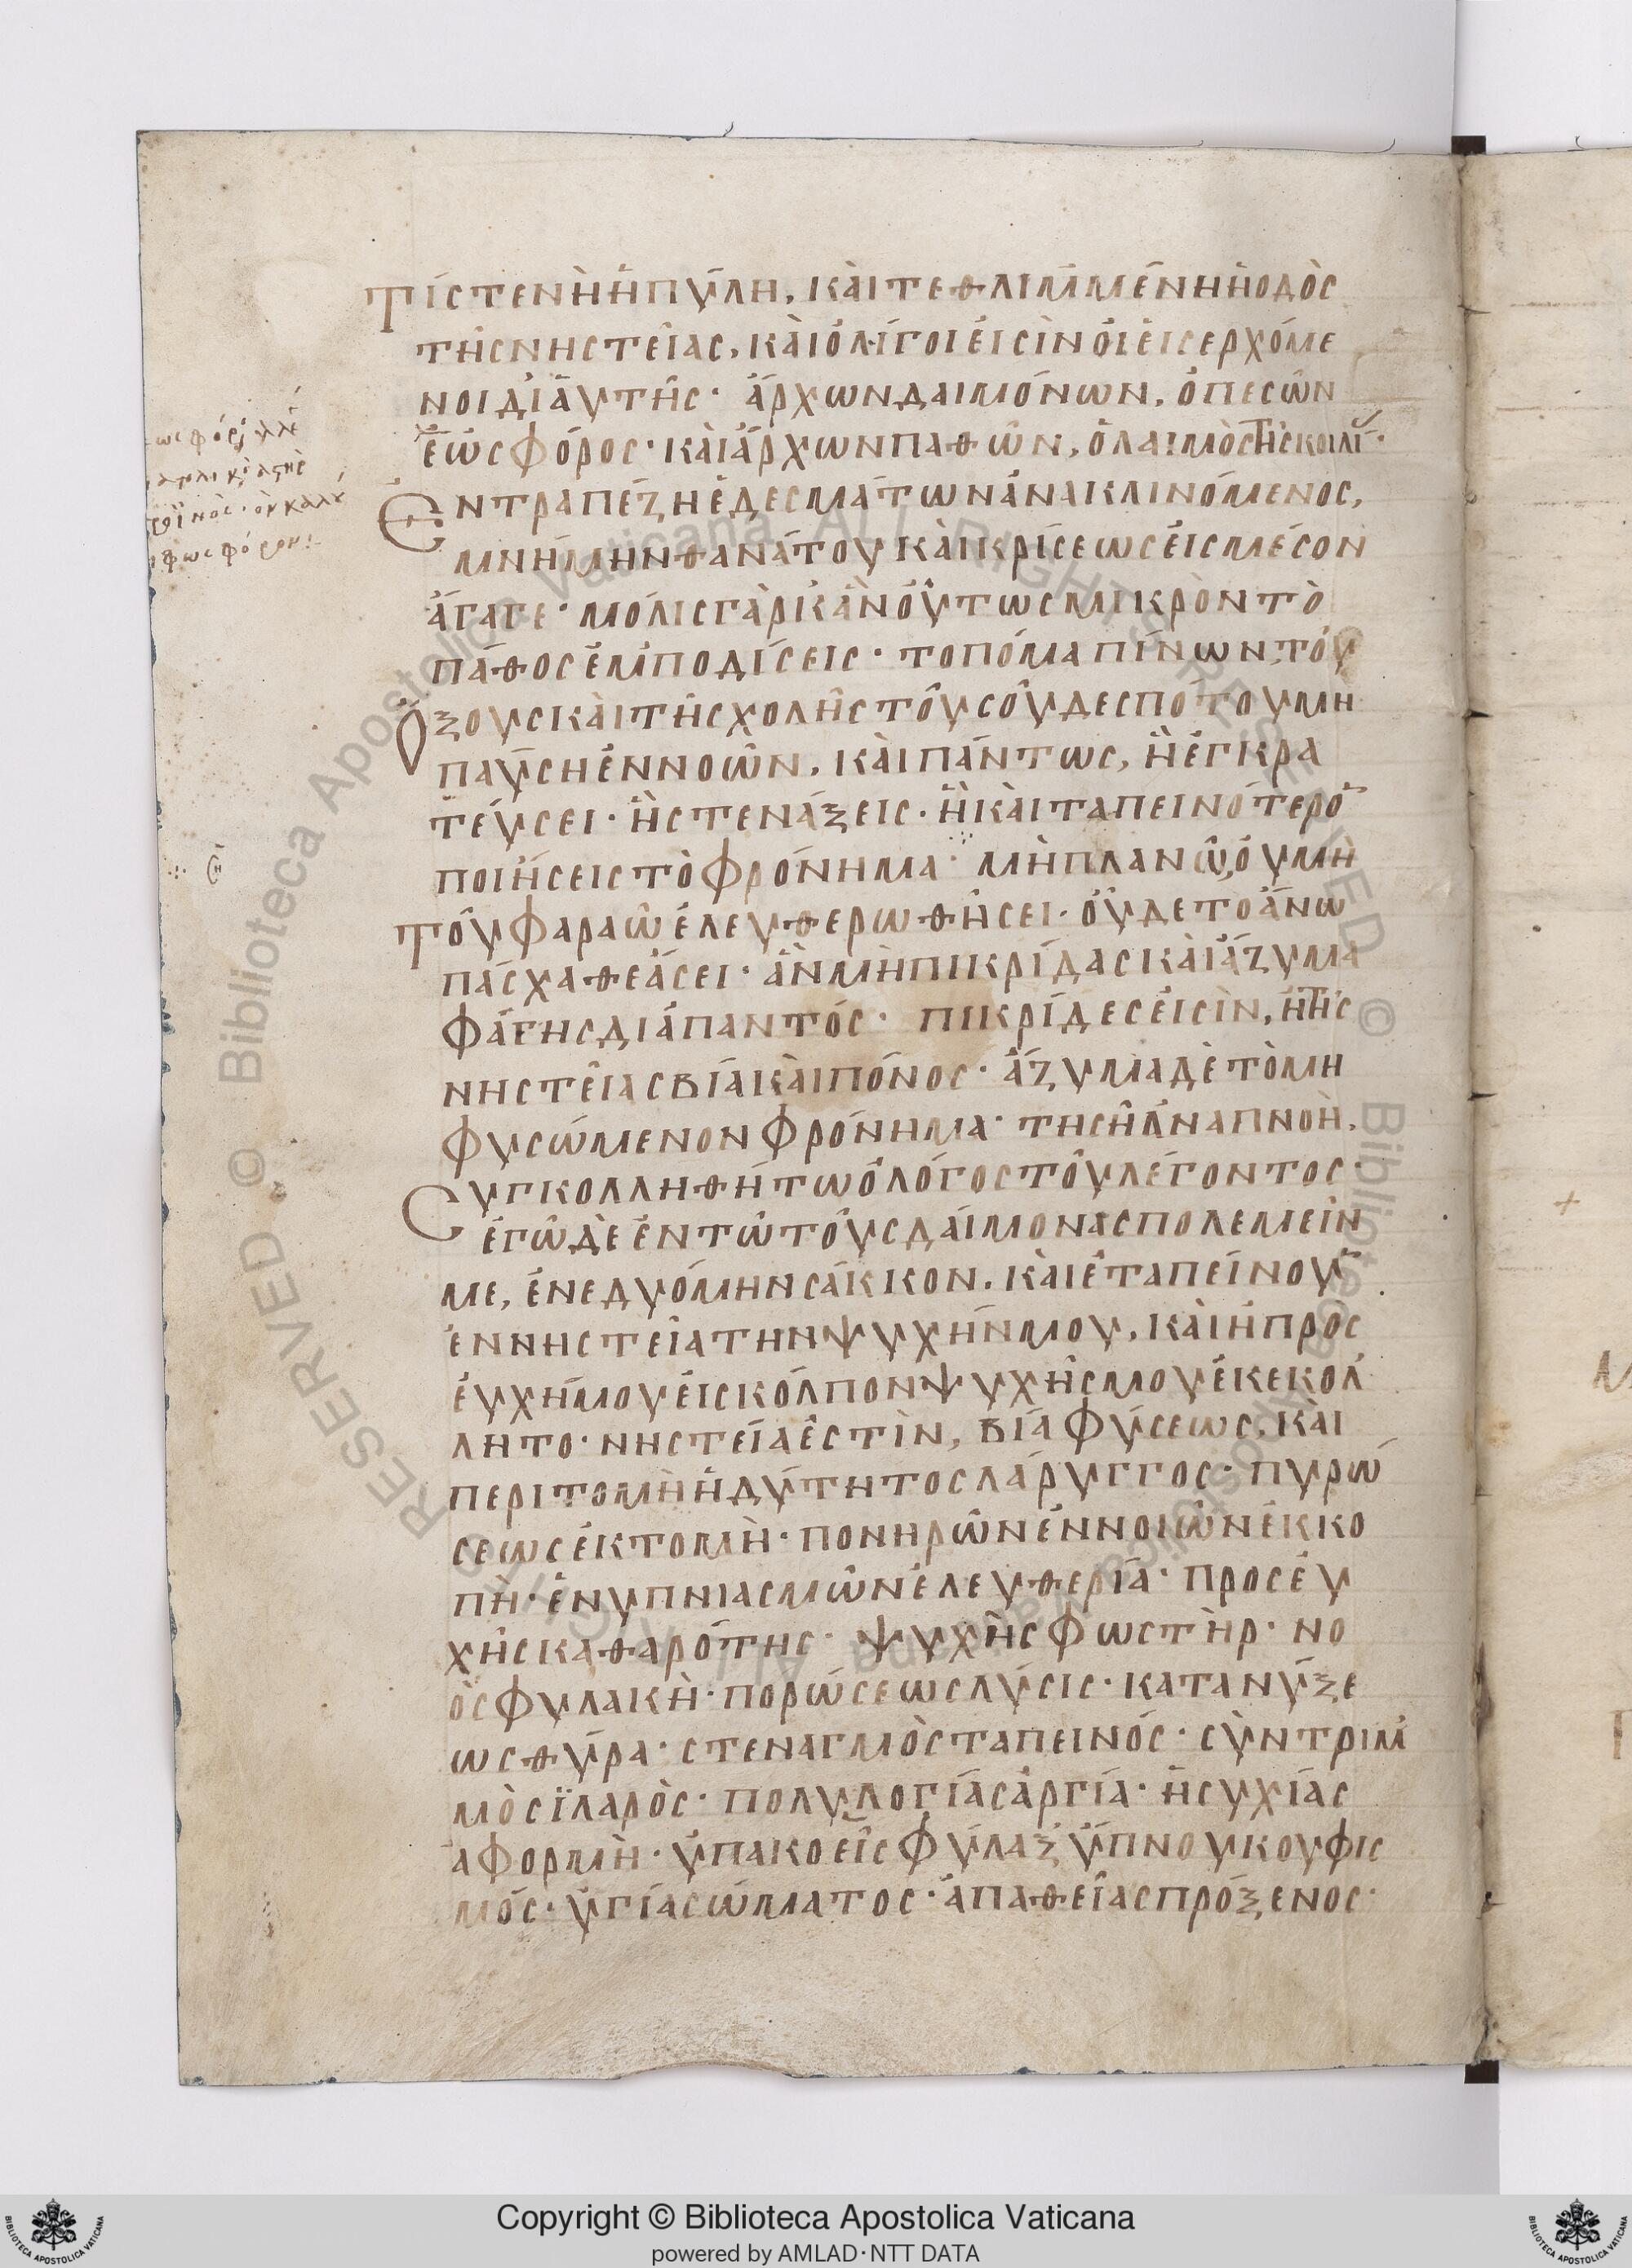 τίς τενὴ ἡ πύλη, καὶ τεθλιμμένη ἡ οδὸς
τῆς νηστείας, καὶ ὀλίγοι ἐισὶν ὁι ἐισερχόμε
νοι δἰ ἀυτῆς· ἄρχων δαιμόνων, ὁ πεσὼν
ἑωσφόρος· καὶ ἄρχων παθῶν, ὁ λαιμὸς τῆς κοιλί·
Ἐν τραπέζη ἐδεσμάτων ἀνακλινόμενος,
μνήμην θανάτου καὶ κρίσεως ἐις μέσον
ἄγαγε· μόλις γὰρ κἀν ὅυτως μικρὸν τὸ
πάθος ἐμποδίσεις· το πόμα πίνων, τόυ
ὄξους καὶ τῆς χολῆς τοῦ σοῦ δεσπότου μη
παύση ἐννοῶν, καὶ πάντως, ἢ ἐγκρα
τεύσει· ἢ στενάξεις· ἢ καὶ ταπεινότερο
ποιήσεις τὸ φρόνημα· μὴ πλανῶ, ὀυ μὴ
τοῦ φαραὼ ἐλευθερωθήσει· ὀυδε το ἄνω
πάσχα θεάσει· ἂν μὴ πικρίδας καὶ ἄζυμα
φάγης διάπαντός· πικρίδες ἐισὶν, ἡ τῆς
νηστείας βία καὶ πόνος· ἄζυμα δὲ τὸ μη
φυσώμενον φρόνημα· τη σῆ ἀναπνοῆ,
Συγκολληθήτω ὁ λόγος τοῦ λέγοντος·
ἐγὼ δὲ ἐν τῶ τοὺς δαίμονας πολεμεῖν
με, ἐνεδυόμην σάκκον, καὶ ἐταπείνου
ἐν νηστεία την ψυχήν μου, καὶ ἡ προς
ἐυχή μου ἐις κόλπον ψυχῆς μου ἐκεκολ
λητο· νηστεία ἐστὶν, βία φύσεως, καὶ
περιτομὴ ἡδύτητος λάρυγγος· πυρώ
σεως ἐκτομὴ· πονηρῶν ἐννοιῶν ἐκκο
πὴ· ἐνυπνιασμῶν ἐλευθερία· προσευ
χῆς καθαρότης· ψυχῆς φωστὴρ· νο
ὸς φυλακὴ· πορώσεως λύσις· κατανύξε
ως θύρα· στεναγμὸς ταπεινός· σὺντριμ
μὸς ϊλαρὸς· πολυλογίας ἀργία· ἡσυχίας
αφορμὴ· ὑπακοεῖς φύλαξ ὕπνου κουφις
μός· ὑγία σώματος· ἀπαθείας πρόξενος·
Copyright © Biblioteca Apostolica Vaticana
powered by AMLAD·NTT DATA